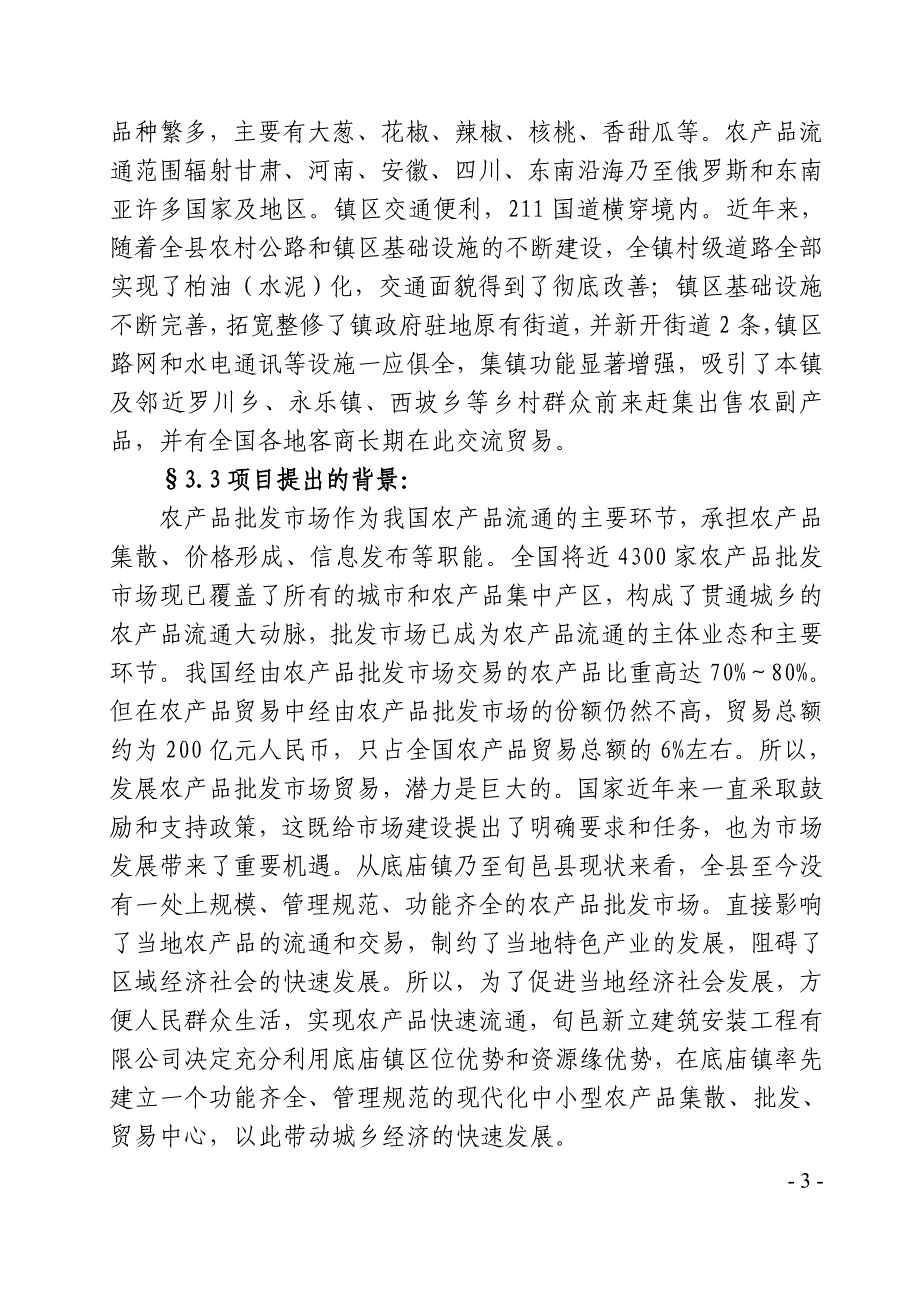 品种繁多，主要有大葱、花椒、辣椒、核桃、香甜瓜等。农产品流
通范围辐射甘肃、河南、安徽、四川、东南沿海乃至俄罗斯和东南
亚许多国家及地区。镇区交通便利，211 国道横穿境内。近年来，
随着全县农村公路和镇区基础设施的不断建设，全镇村级道路全部
实现了柏油（水泥）化，交通面貌得到了彻底改善；镇区基础设施
不断完善，拓宽整修了镇政府驻地原有街道，并新开街道 2 条，镇区
路网和水电通讯等设施一应俱全，集镇功能显著增强，吸引了本镇
及邻近罗川乡、永乐镇、西坡乡等乡村群众前来赶集出售农副产
品，并有全国各地客商长期在此交流贸易。
§3.3 项目提出的背景：
农产品批发市场作为我国农产品流通的主要环节，承担农产品
集散、价格形成、信息发布等职能。全国将近 4300 家农产品批发
市场现已覆盖了所有的城市和农产品集中产区，构成了贯通城乡的
农产品流通大动脉，批发市场已成为农产品流通的主体业态和主要
环节。我国经由农产品批发市场交易的农产品比重高达 70%～80%。
但在农产品贸易中经由农产品批发市场的份额仍然不高，贸易总额
约为 200 亿元人民币，只占全国农产品贸易总额的 6%左右。所以，
发展农产品批发市场贸易，潜力是巨大的。国家近年来一直采取鼓
励和支持政策，这既给市场建设提出了明确要求和任务，也为市场
发展带来了重要机遇。从底庙镇乃至旬邑县现状来看，全县至今没
有一处上规模、管理规范、功能齐全的农产品批发市场。直接影响
了当地农产品的流通和交易，制约了当地特色产业的发展，阻碍了
区域经济社会的快速发展。所以，为了促进当地经济社会发展，方
便人民群众生活，实现农产品快速流通，旬邑新立建筑安装工程有
限公司决定充分利用底庙镇区位优势和资源缘优势，在底庙镇率先
建立一个功能齐全、管理规范的现代化中小型农产品集散、批发、
贸易中心，以此带动城乡经济的快速发展。
- 3 -